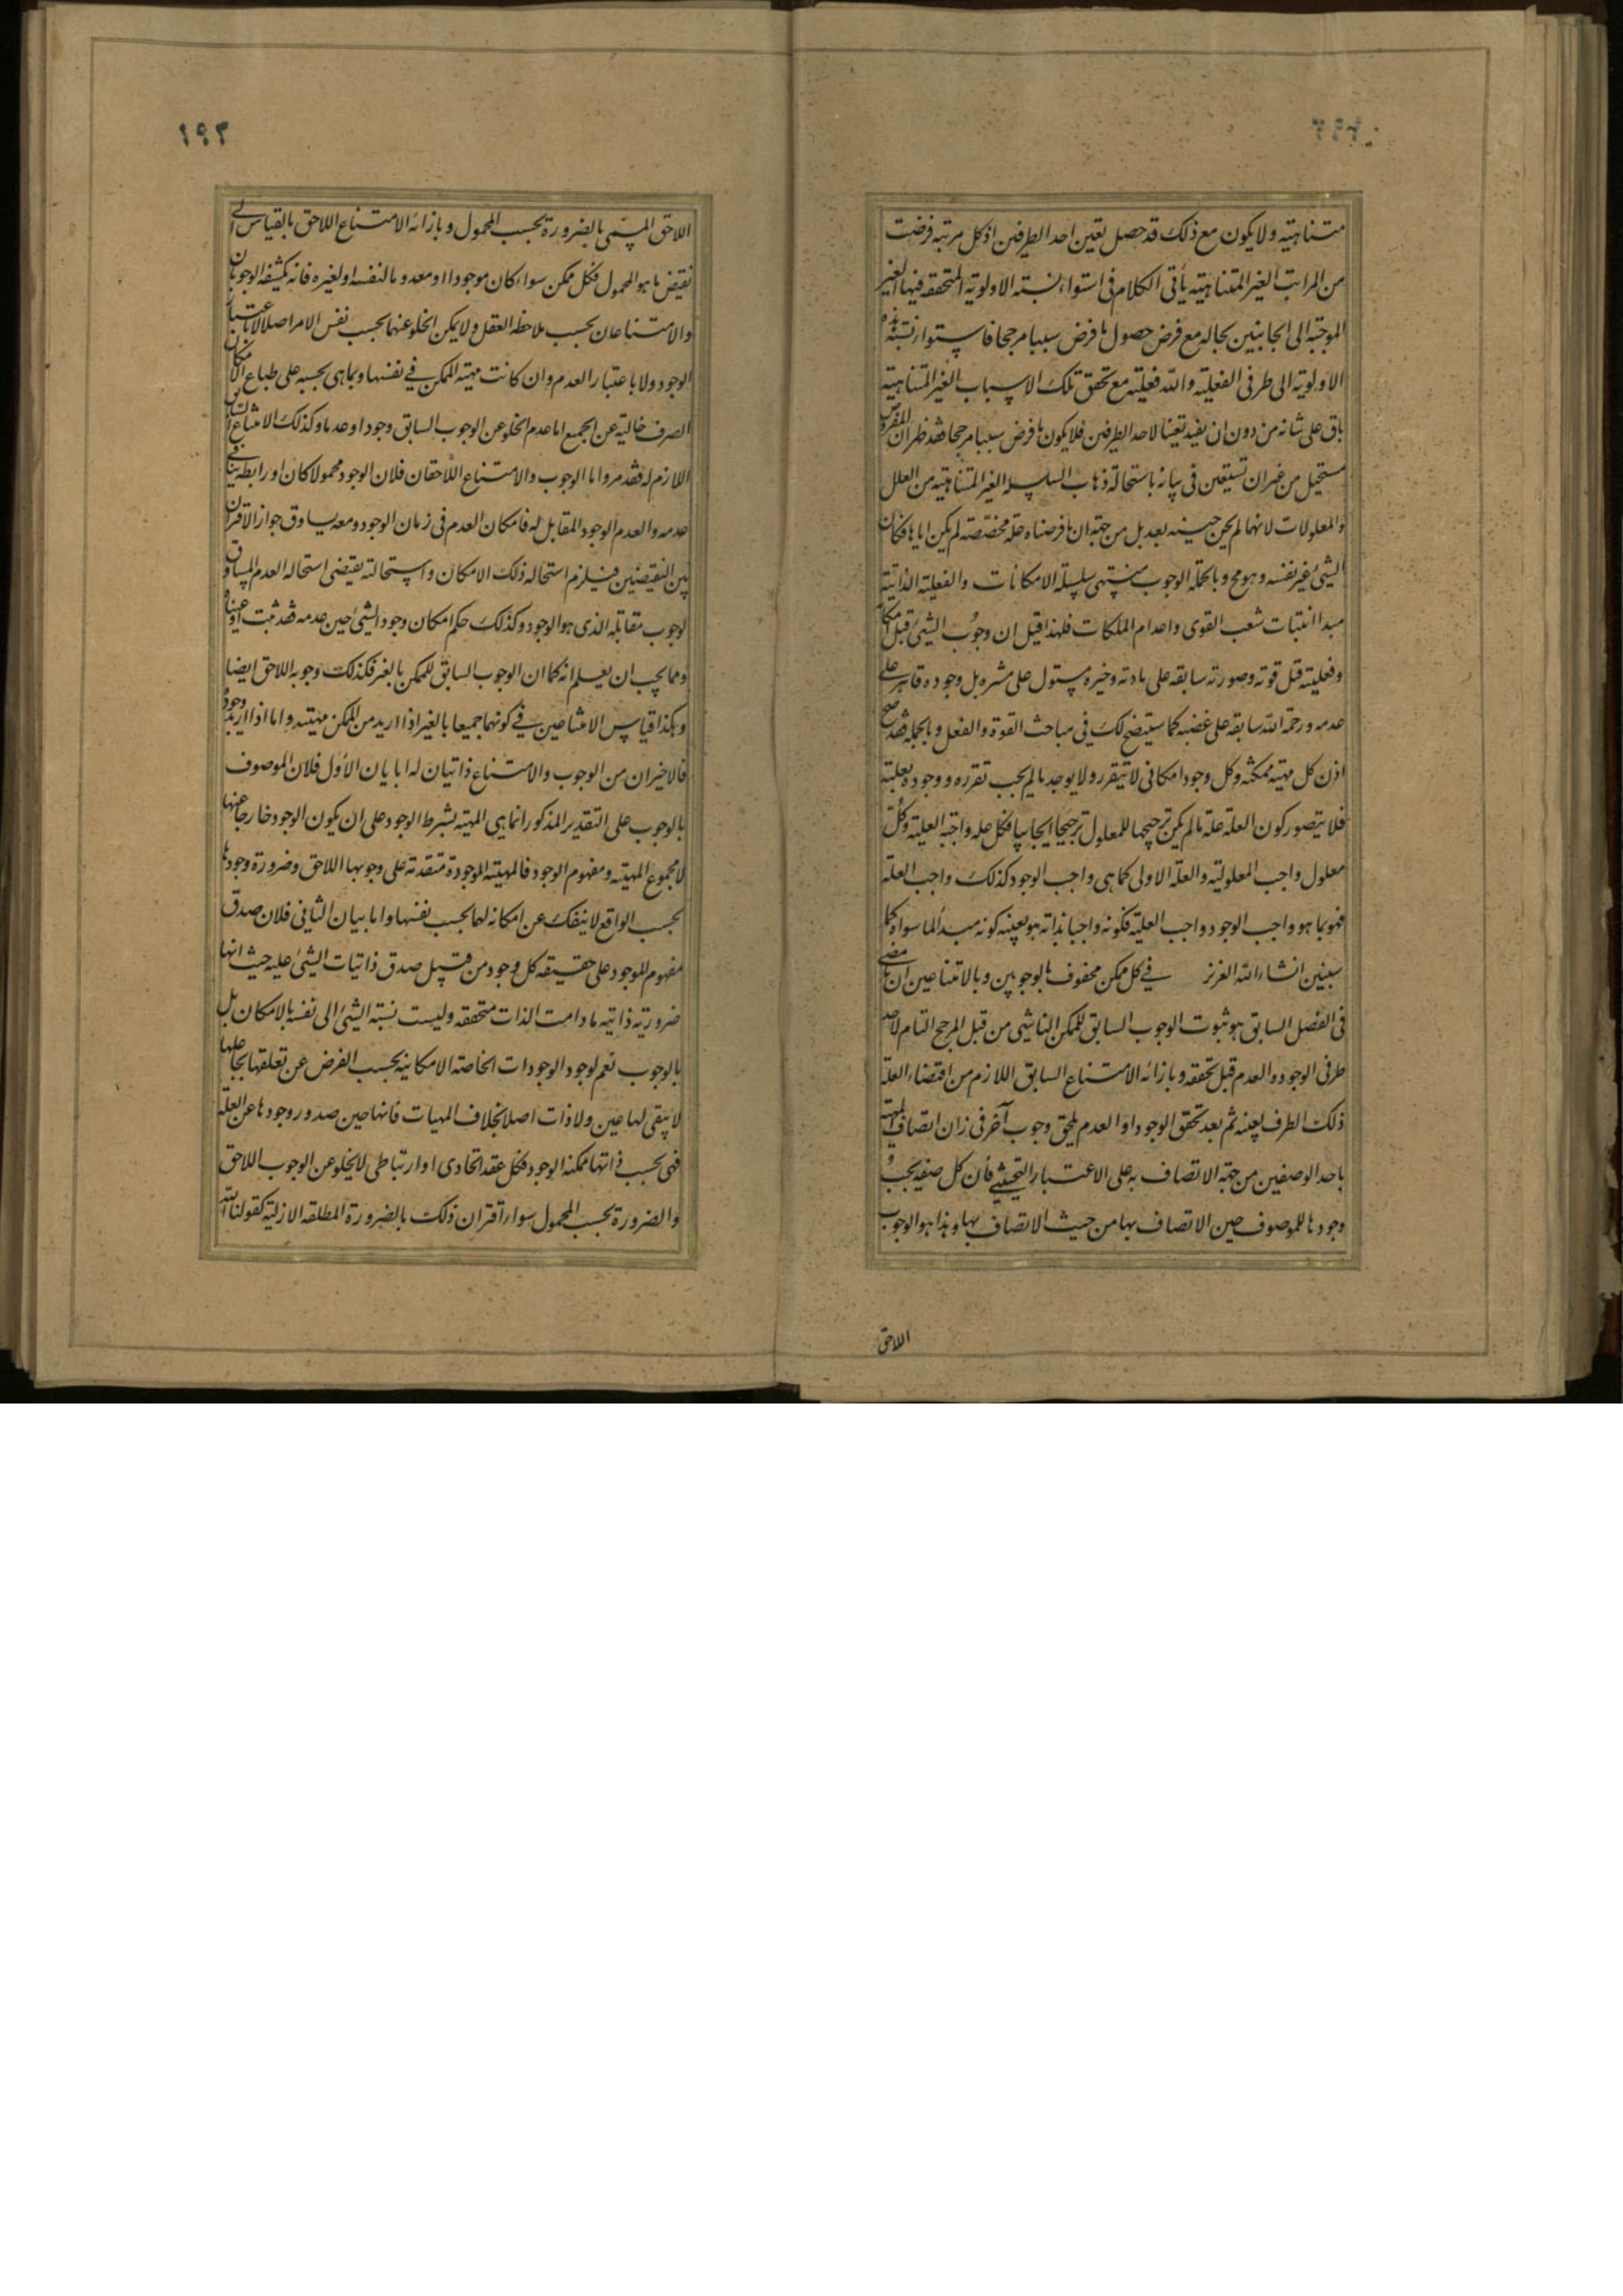 متناهیته ولا یکون مع ذلک قد حصل تعین احد الطرفین اذ کل مرتبه فرضت
من المراتب الغیر المتناهیته یأتی الکلام فی استواء نسبته الاولویة المتحققه فیها الغیر
الموجبة الی الجانبین بحاله مع فرض حصول ما فرض سببا مرجحا فاستواء نسبته هذه
الاولویه الی طرفی الفعلیته واللا فعلیته مع تحقق تلک الاسباب الغیر المتناهیته
باق علی شانه من دون ان یفید تعینا لاحد الطرفین فلا یکون ما فرض سببا مرجحا فقد ظهر ان المفروض
مستحیل من غیر ان نستعین فی بیانه باستحالة ذهاب السلسله الغیر المتناهیته من العلل
والمعلولات لانها لم یحن حینه بعد بل من جهة ان ما فرضناه علة مخصصة لم یکن ایاها فکان
الشیٔ غیر نفسه وهو مح وبالجملة الوجوب منتهی سلسلة الامکانات والفعلیته الذاتیته
مبدأ انبتات شعب القوی واعدام الملکات فلهذا قیل ان وجوب الشیٔ قبل امکانه
وفعلیته قبل قوته وصورته سابقه علی مادته وخیره مستول علی شره بل وجوده قاهر علی
عدمه ورحمة الله سابقه علی غضبه کما سیتضح لک فی مباحث القوة والفعل وبالجمله فقد صح
اذن کل مهیته ممکنه وکل وجود امکانی لا یتقرر ولا یوجد ما لم یجب تقرره ووجوده بعلته
فلا یتصور کون العلة علة ما لم یکن ترجیحها للمعلول ترجیحا ایجابیا فکل علة واجبة العلیة وکل
معلول واجب المعلولیته والعلة الاولی کما هی واجب الوجود کذلک واجب العلة
فهو بما هو واجب الوجود واجب العلیة فکونه واجبا بذاته هو بعینه کونه مبدأ لما سواه کما
سیبین انشاء الله العزیز فی کل ممکن محفوف بالوجوبین وبالامتناعین ان ما مضی
فی الفصل السابق هو ثبوت الوجوب السابق للممکن الناشی من قبل المرجح التام لاحد
طرفی الوجود والعدم قبل تحققه وبازائه الامتناع السابق اللازم من اقتضاء العلة
ذلک الطرف بعینه ثم بعد تحقق الوجود او العدم یلحق وجوب آخر فی زمان اتصاف المهیة
باحد الوصفین من جهة الاتصاف به علی الاعتبار التحیثی فان کل صفه یجب
وجودها للموصوف حین الاتصاف بها من حیث الاتصاف بها وهذا هو الوجوب
اللاحق
۱۹۳
اللاحق المسمی بالضرورة بحسب المحمول وبازائه الامتناع اللاحق بالقیاس الی
نقیض ما هو المحمول فکل ممکن سواء کان موجودا او معدوما لنفسه او لغیره فانه یکشفه الوجوبان
والامتناعان بحسب ملاحظه العقل ولا یمکن الخلو عنهما بحسب نفس الامر اصلا لا باعتبار
الوجود ولا باعتبار العدم وان کانت مهیته الممکن فی نفسها وبما هی بحسبه علی طباع الامکان
الصرف خالیة عن الجمیع اما عدم الخلو عن الوجوب السابق وجودا وعدما وکذلک الامتناع السابق
اللازم له فقد مر واما الوجوب والامتناع اللاحقان فلان الوجود محمولا کان او رابطه ینافی
عدمه والعدم الوجود المقابل له فامکان العدم فی زمان الوجود ومعه یساوق جواز الاقتران
بین النقیضین فیلزم استحاله ذلک الامکان واستحالته یقتضی استحاله العدم المساوق
لوجوب مقابله الذی هو الوجود وکذلک حکم امکان وجود الشیٔ حین عدمه فقد ثبت ما ادعیناه
ومما یجب ان یعلم انه کما ان الوجوب السابق للممکن بالغیر فکذلک وجوبه اللاحق ایضا
وهکذا قیاس الامتناعین فی کونهما جمیعا بالغیر اذا ارید من الممکن مهیته واما اذا ارید وجوده
فالاخیران من الوجوب والامتناع ذاتیان له اما بیان الأول فلان الموصوف
بالوجوب علی التقدیر المذکور انما هی المهیته بشرط الوجود علی ان یکون الوجود خارجا عنها
لا مجموع المهیته ومفهوم الوجود فالمهیته الموجودة متقدمة علی وجوبها اللاحق وضرورة وجودها
بحسب الواقع لا ینفک عن امکانه لها بحسب نفسها واما بیان الثانی فلان صدق
مفهوم الموجود علی حقیقه کل وجود من قبیل صدق ذاتیات الشیٔ علیه حیث انها
ضروریه ذاتیه ما دامت الذات متحققه ولیست نسبة الشیٔ الی نفسه بالامکان بل
بالوجوب نعم لوجود الوجودات الخاصة الامکانیه بحسب الفرض عن تعلقها بجاعلها
لا یبقی لها عین ولا ذات اصلا بخلاف المهیات فانها حین صدور وجودها عن العلة
فهی بحسب ذاتها ممکنه الوجود فکل عقد اتحادی او ارتباطی لا یخلو عن الوجوب اللاحق
والضرورة بحسب المحمول سواء اقتران ذلک بالضرورة المطلقه الازلیة کقولنا الله